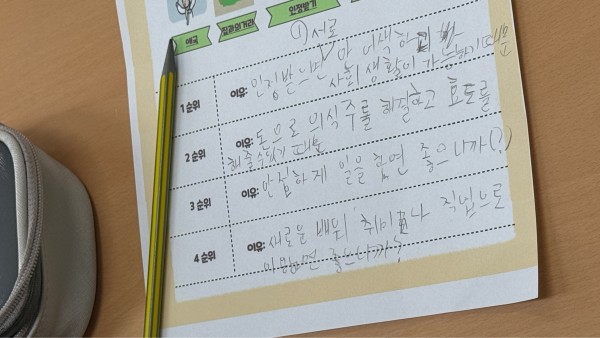 애국 집과의거리 인정받기
① 서로
1순위 이유: 인정받으면 안 어색하고
사회 생활이 가능하기 때문
2순위 이유: 돈으로 의식주를 해결하고 효도를
해줄 수 있기 때문
3순위 이유: 안전하게 일을 하면 좋으니까(?)
4순위 이유: 새로운 배워 취미나 직업으로
이용하면 좋으니까?